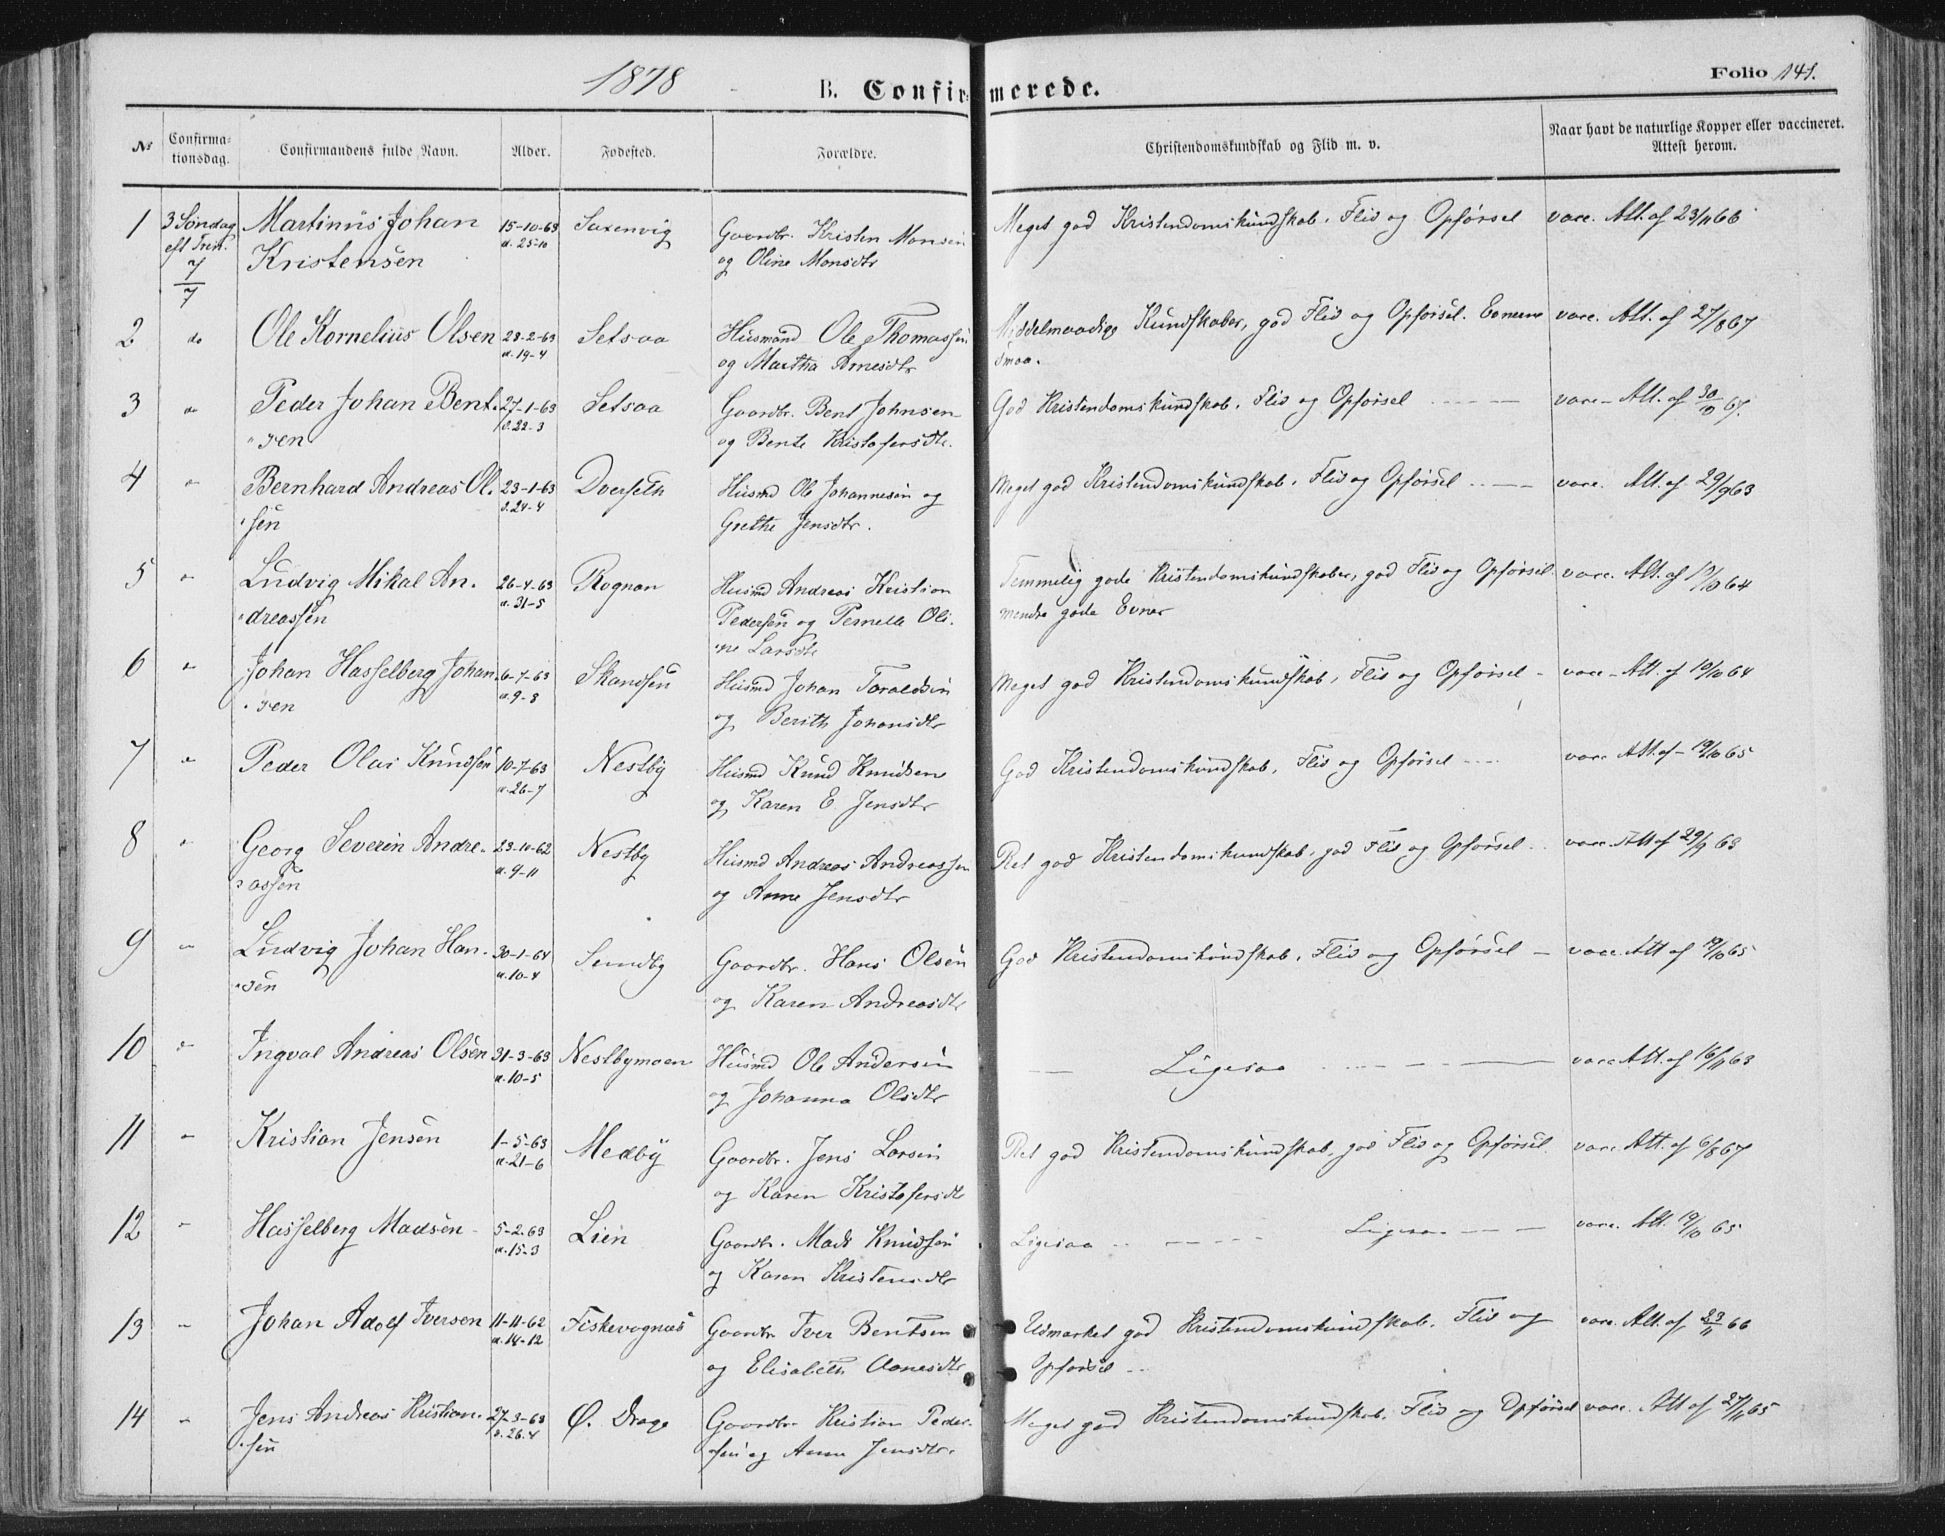 1878
B. Confirmerede.
Folio 141.
No Confirmationsdag. Confirmandens fulde Navn. Alder. Fødested. Forældre. Christendomskundskab og Flid m. v. Naar havt de naturlige Kopper eller vaccineret. Attest herom.
1 3 Søndag Martinus Johan 15-10-63 Saxenvig Gaardbr. Kristen Monsen Meget god Kristendomskundskab, Flid og Opførsel vacc. Att. af 23/11 66
eft Trin. 7/7 Kristensen d. 25-10 og Oline Monsdtr
2 do Ole Kornelius Olsen 28-2-63 Setsaa Husmand Ole Thomassen Middelmaadige Kundskaber, god Flid og Opførsel. Evnerne vacc. Att. af 27/8 67
d. 19-4 og Martha Arnesdtr smaa.
3 " Peder Johan Bent- 27-1-63 Setsaa Gaardbr. Bent Johnsen God Kristendomskundskab, Flid og Opførsel vacc - Att. af 30/10 67.
sen d. 22-3 og Bente Kristofersdtr.
4 " Bernhard Andreas Ol- 23-1-63 Dverseth Husmd Ole Johannesen og Meget god Kristendomskundskab, Flid og Opførsel vacc. Att. af 29/9 63
sen d. 24-4 Grethe Jensdtr.
5 " Ludvig Mikal An- 26-4-63 Rognan Husmd Andreas Kristian Temmelig gode Kristendomskundskaber, god Flid og Opførsel. vacc. Att. af 19/10 64
dreassen d. 31-5 Pedersen og Pernelle Oli- mendre gode Evner
ne Larsdtr
6 " Johan Hasselberg Johan- 6-7-63 Skansen Husmd Johan Toraldsen Meget god Kristendomskundskab, Flid og Opførsel - vacc - Att. af 19/10 64
sen d. 9-8 og Berith Johansdtr
7 " Peder Olai Knudsen 10-7-63 Nestby Husmd Knud Knudsen God Kristendomskundskab, Flid og Opførsel vacc Att. af - 19/10 65
d. 26-7 og Karen E. Jensdtr
8 " Georg Severin Andre- 23-10-62 Nestby Husmd Andreas Andreassen Ret god Kristendomskundskab, god Flid og Opførsel vacc. Att af 29/9 63
assen d. 9-11 og Anne Jensdtr
9 " Ludvig Johan Han- 30-1-64 Sundby Gaardbr. Hans Olsen God Kristendomskundskab, Flid og Opførsel - vacc. Att af 19/10 65
sen d. 10-4 og Karen Andreasdtr
10 " Ingval Andreas Olsen 31-3-63 Nestbymoen Husmd Ole Andersen Ligesaa vacc Att. af 16/11 63
d. 10-5 og Johanna Olsdtr
11 " Kristian Jensen 1-5-63 Medby Gaardbr. Jens Larsen Ret god Kristendomskundskab, god Flid og Opførsel. vacc. Att. af 6/8 67
d. 21-6 og Karen Kristofersdtr
12 " Hasselberg Madsen 5-2-63 Lien Gaardbr. Mads Knudsen Ligesaa Ligesaa vacc. Att. 19/10 65
d. 15-3 og Karen Kristensdtr
13 " Johan Adolf Iversen 11-11-62 Fiskevognæs Gaardbr Iver Bentsen Udmærket god Kristendomskundskab, Flid og vacc. Att. af 23/11 66
d. 14-12 og Elisabeth Aanesdtr Opførsel
14 " Jens Andreas Kristian- 27-3-63 Ø. Drage Gaardbr Kristian Peder- Meget god Kristendomskundskab, Flid og Opførsel vacc. Att af 27/11 65
sen d. 26-4 sen og Anne Jensdtr.